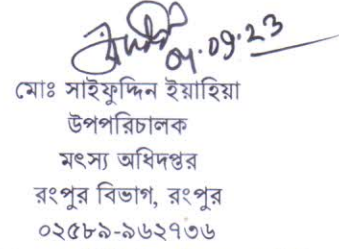 মোঃ সাইফুদ্দিন ইয়াহিয়া
উপপরিচালক
মৎস্য অধিদপ্তর
রংপুর বিভাগ, রংপুর
০২৫৮৯-৯৬২৭৩৬